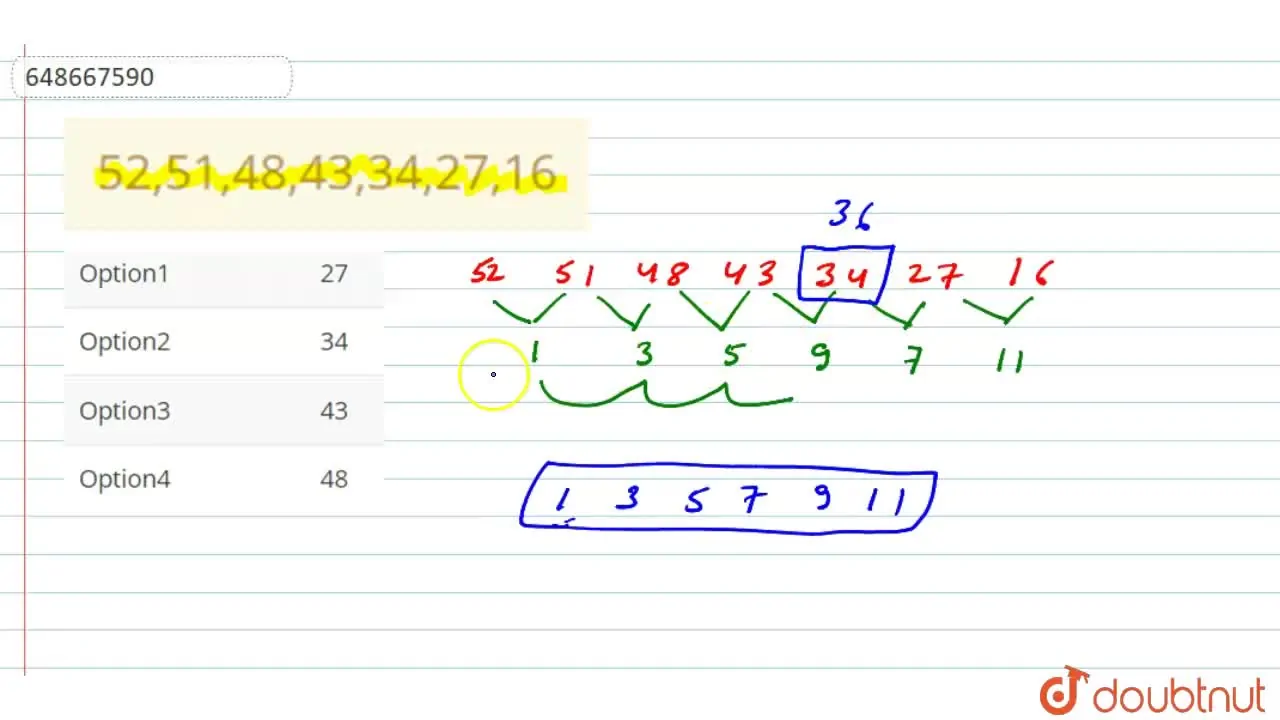 648667590
52,51,48,43,34,27,16
36
52 51 48 43 34 27 16
Option1 27
Option2 34
1 3 5 9 7 11
Option3 43
Option4 48
1 3 5 7 9 11
doubtnut